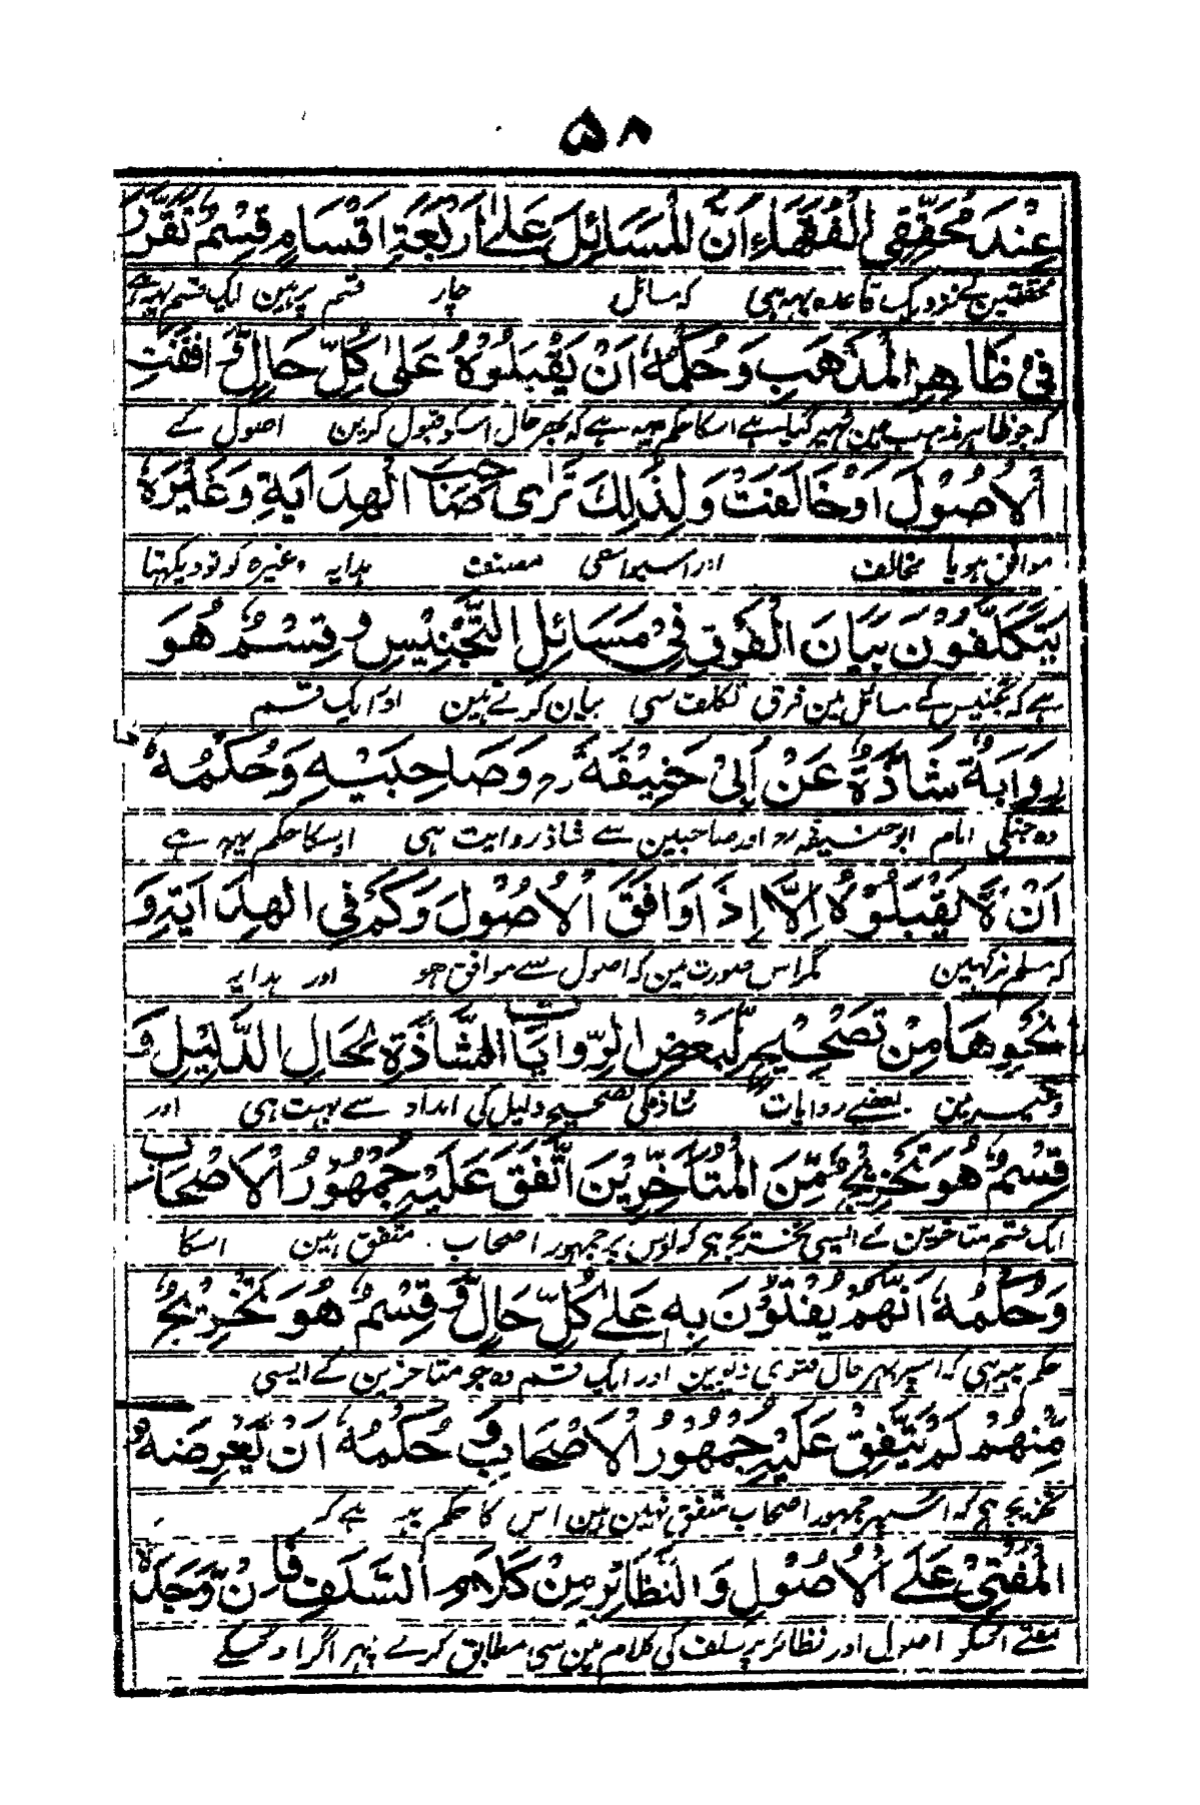 ۵۸
عِنْدَ مُحَقِّقِي الْفُقَهَاءِ اَنَّ الْمَسَائِلَ عَلٰى اَرْبَعَةِ اَقْسَامٍ قِسْمٌ تَقَرَّرَ
محققین کے نزدیک قاعدہ یہہ ہی کہ مسائل چار قسم پر ہین ایک قسم یہہ ہے
فِىْ ظَاهِرِ الْمَذْهَبِ وَحُكْمُهٗ اَنْ يَقْبَلُوْهُ عَلٰى كُلِّ حَالٍ وَافَقَتِ
کہ جو ظاہر مذہب مین ٹھہر گیا ہے اسکا حکم یہہ ہے کہ بہر حال اسکو قبول کرین اصول کے
الْاُصُوْلَ اَوْ خَالَفَتْ وَلِذٰلِكَ تَرٰى صَاحِبَ الْهِدَايَةِ وَغَيْرَهٗ
موافق ہو یا مخالف اور اسیواسطی مصنف ہدایہ وغیرہ کو تو دیکہتا
يَتَكَلَّفُوْنَ بَيَانَ الْفَرْقِ فِىْ مَسَائِلِ التَّجْنِيْسِ وَقِسْمٌ هُوَ
ہے کہ تجنیس کے مسائل مین فرق تکلف سی بیان کرتے ہین اور ایک قسم
رِوَايَةٌ شَاذَّةٌ عَنْ اَبِىْ حَنِيْفَةَ رح وَصَاحِبَيْهِ وَحُكْمُهٗ
وہ جنکی امام ابو حنیفہ رح اور صاحبین سے شاذ روایت ہی اسکا حکم یہہ ہے
اَنْ لَّا يَقْبَلُوْهُ اِلَّا اِذَا وَافَقَ الْاُصُوْلَ وَكَمْ فِى الْهِدَايَةِ وَ
کہ مسلم نرکہین مگر اس صورت مین کہ اصول سے موافق ہو اور ہدایہ
نَحْوِهَا مِنْ تَصْحِيْحٍ لِّبَعْضِ الرِّوَايَاتِ الشَّاذَّةِ بِحَالِ الدَّلِيْلِ وَ
وغیرہ مین بعضے روایات شاذہ کی تصحیح دلیل کی امداد سے بہت ہی اور
قِسْمٌ هُوَ تَخْرِيْجٌ مِّنَ الْمُتَاَخِّرِيْنَ اتَّفَقَ عَلَيْهِ جُمْهُوْرُ الْاَصْحَابِ
ایک قسم متاخرین کے ایسی تخریج ہی کہ اوس پر جمہور اصحاب متفق ہین اسکا
وَحُكْمُهٗ اَنَّهُمْ يُفْتُوْنَ بِهٖ عَلٰى كُلِّ حَالٍ وَقِسْمٌ هُوَ تَخْرِيْجٌ
حکم یہہ ہی کہ اسپر بہر حال فتوی دیوین اور ایک قسم وہ جو متاخرین کے ایسی
مِّنْهُمْ لَمْ يَتَّفِقْ عَلَيْهِ جُمْهُوْرُ الْاَصْحَابِ وَحُكْمُهٗ اَنْ يَّعْرِضَهٗ
تخریج ہی کہ اسپر جمہور اصحاب متفق نہین ہین اس کا حکم یہہ ہے کہ
الْمُفْتِىْ عَلَى الْاُصُوْلِ وَالنَّظَائِرِ مِنْ كَلَامِ السَّلَفِ فَاِنْ وَّجَدَهٗ
مفتے اسکو اصول اور نظائر پر سلف کی کلام مین سی مطابق کرے پہر اگر اوسکے